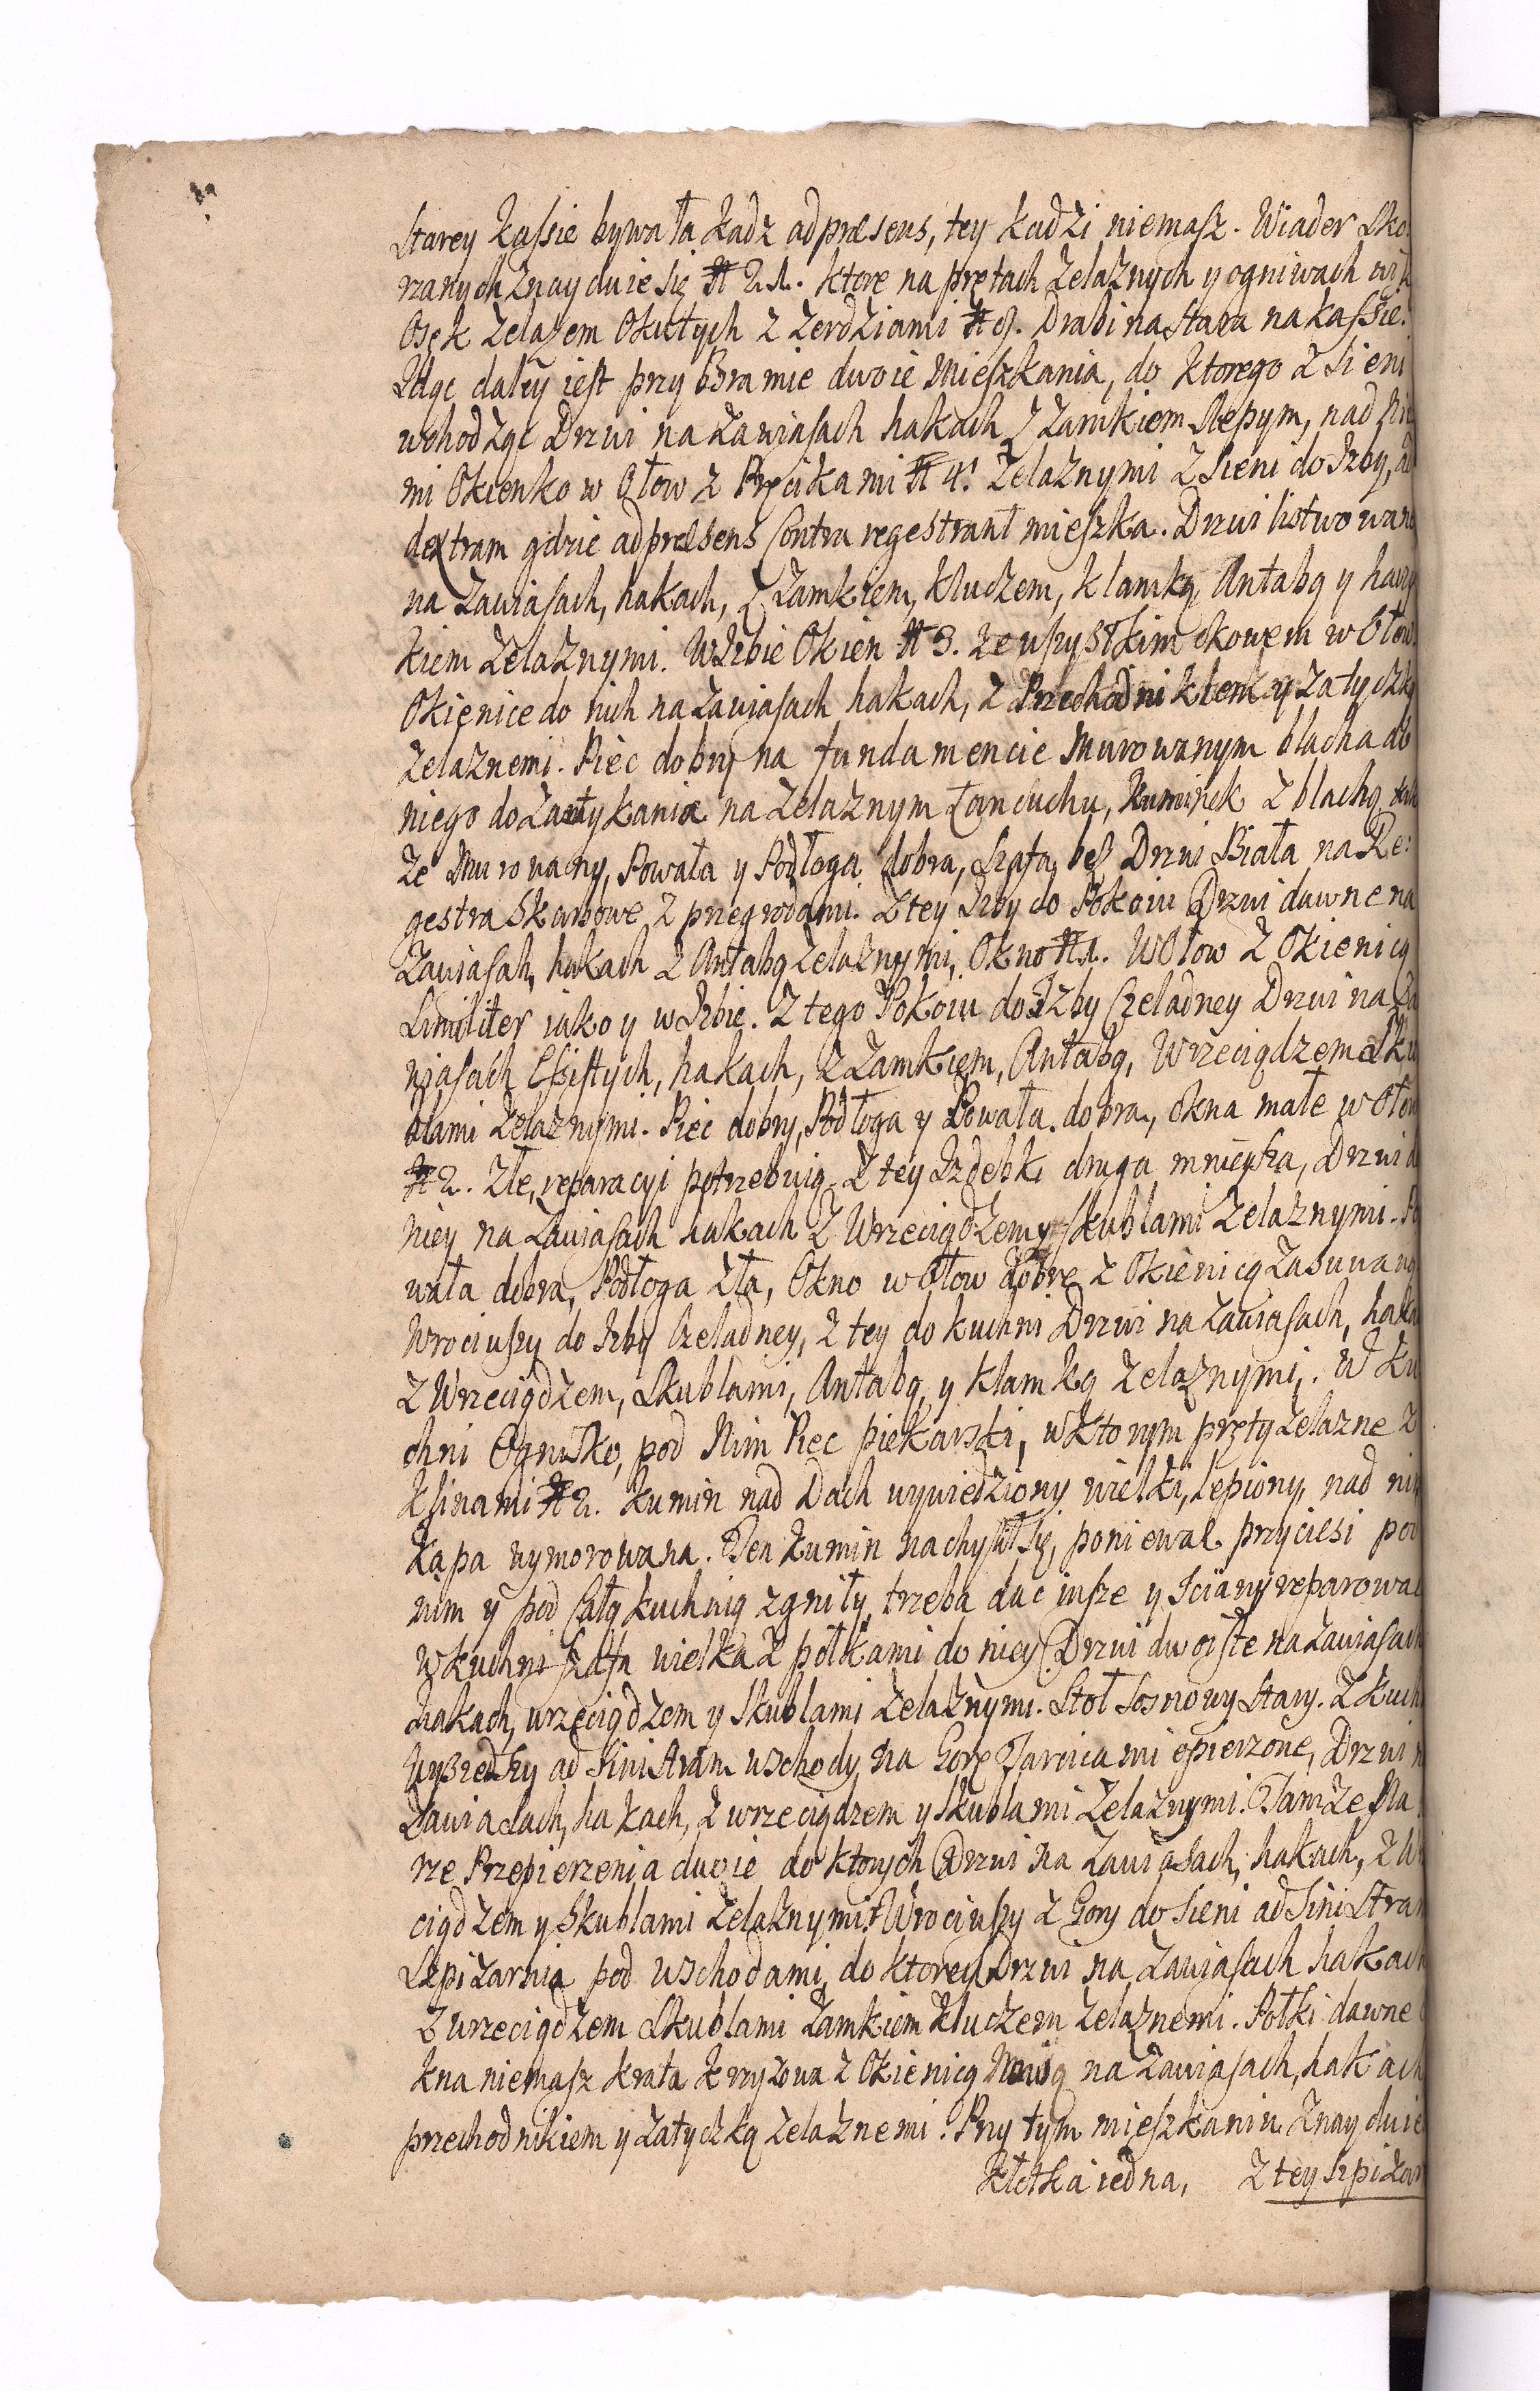 Starey kassie bywała kadz adpræsens, tey kadzi niemasz. Wiader sko:
rzanych znayduie się № 21. ktore na prętach żelaznych y ogniwach
Osęk żelazem okutych z żerdziami № 9. Drabina stara na kassie.
Idąc daley iest przy Bramie dwoie Mieszkania, do ktorego z sieni
wchodząc Drzwi na zawiasach hakach z zamkiem slepym, nad nie
mi Okienko w Ołow z Pręcikami № 4. żelaznymi z sieni do Izby, ad
dextram gdzie adpræsens Contra regestrant mieszka. Drzwi listwowane
na zawiasach, hakach, z zamkiem, kluczem, klamką Antabą y haczy
kiem żelaznymi. W Izbie Okien № 3. ze wszystkim okowem w Ołow.
Okienice do nich na zawiasach hakach, z Przechodnikiem y zatyczką
żelaznemi. Piec dobry na fundamencie Murowanym blacha do
niego do zatykania na żelaznym łancuchu, kuminek z blachą tak
że Murowany, Powała y Podłoga dobra, szafa bez Drzwi Biała na Re:
gestra Skarbowe, z przegrodami. Z tey Izby do Pokoiu Drzwi dawne na
zawiasah, hakach z Antabą żelaznymi, Okno № 1. W Ołow z Okienicą
Similiter iako y w Izbie. Z tego Pokoiu do Izby Czeladney Drzwi na za
wiasach Essistych, hakach, z zamkiem, Antabą, Wrzeciądzem Sku
blami żelaznymi. Piec dobry, Podłoga y Powała dobra, okna małe w Ołow
№ 2. złe, reparacyi potrzebuią. Z tey Izdebki druga mnieysza, Drzwi do
niey na zawiasach hakach z Wrzeciądzem y skublami żelaznymi. Po
wała dobra, Podłoga zła, Okno w Ołow dobre z Okienicą zasuwaną
Wrociwszy do Izby Czeladney, z tey do kuchni Drzwi na zawiasach, haka
z Wrzeciądzem, Skublami, Antabą, y klamką żelaznymi. W ku
chni Ognisko, pod Nim Piec piekarski, w ktorym pręty żelazne z
ksinami № 2. kumin nad Dach wywiedziony wielki, lepiony, nad nim
kapa wymorowana. Ten kumin nachylił się, poniewaz przyciesi pod
nim y pod całą kuchnią zgniły, trzeba dac insze y sciany reparowac
w kuchni szafa wielka z połkami do niey Drzwi dwoiste na zawiasach
hakach, wrzeciądzem y skublami żelaznymi. Stoł Sosnowy stary. Z kuch
wyszedszy ad sinistram wschody na Gorę Tarcicami opierzone, Drzwi n
zawiasach, hakach, z wrzeciądzem y skublami żelaznymi. Tamże na
rze Przepierzenia dwoie do ktorych Drzwi na zawiasach, hakach, z W
ciądzem y Skublami żelaznymi. Wrociwszy z Gory do sieni ad sinistram
szpiżarnia pod wschodami, do ktorey Drzwi na zawiasach hakach
z wrzeciądzem Skublami zamkiem kluczem żelaznemi. Połki dawne
kna niemasz krata krzyżowa z Okienicą Nową na zawiasach, hakach
przechodnikiem y zatyczką żelaznemi. Przy tym mieszkaniu znayduie
kłotka iedna, Z tey szpiżar